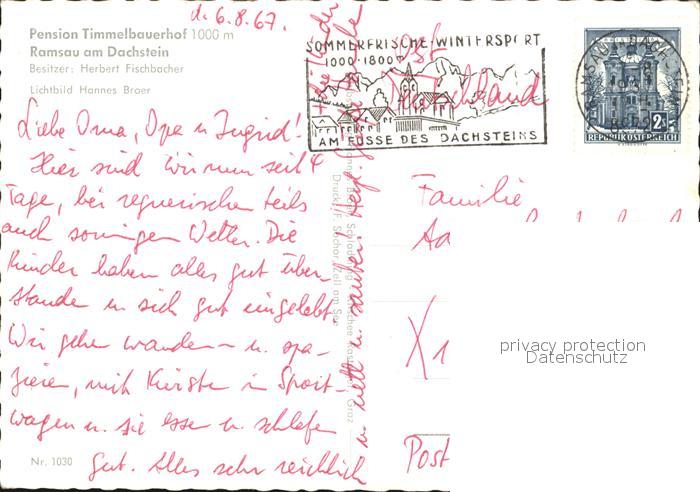 d. 6.8.67.
Pension Timmelbauerhof 1000 m
Ramsau am Dachstein
Besitzer: Herbert Fischbacher
Lichtbild Hannes Broer
Liebe Oma, Opa u Ingrid!
Hier sind wir nun seit 4
Tage, bei regnerischen teils
auch sonnigen Wetter. Die
Kinder haben alles gut über-
standen u sich gut eingelebt.
Wir gehen wandern u. spa-
zieren, mit Kerstin in Sport-
wagen u. sie essen u. schlafen
gut. Alles sehr reichlich
u nett u. sauber.
Nr. 1030
SOMMERFRISCHE-WINTERSPORT
1000-1800
AM FUSSE DES DACHSTEINS
REPUBLIK ÖSTERREICH
2S
Post
Deutschland
Familie
Aa
X 1
Post
privacy protection
Datenschutz